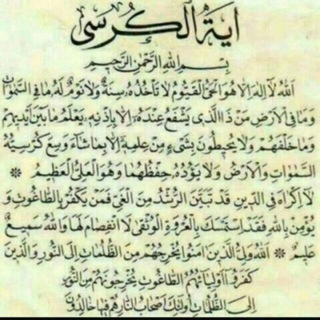 آية الكرسي
بِسْمِ اللهِ الرَّحْمٰنِ الرَّحِيمِ
اَللهُ لَا إِلٰهَ إِلَّا هُوَ الْحَيُّ الْقَيُّومُ لَا تَأْخُذُهُ سِنَةٌ وَلَا نَوْمٌ لَهُ مَا فِي السَّمٰوَاتِ
وَمَا فِي الْأَرْضِ مَنْ ذَا الَّذِي يَشْفَعُ عِنْدَهُ إِلَّا بِإِذْنِهِ يَعْلَمُ مَا بَيْنَ أَيْدِيهِمْ
وَمَا خَلْفَهُمْ وَلَا يُحِيطُونَ بِشَيْءٍ مِنْ عِلْمِهِ إِلَّا بِمَا شَاءَ وَسِعَ كُرْسِيُّهُ
السَّمٰوَاتِ وَالْأَرْضَ وَلَا يَؤُدُهُ حِفْظُهُمَا وَهُوَ الْعَلِيُّ الْعَظِيمُ *
لَا إِكْرَاهَ فِي الدِّينِ قَدْ تَبَيَّنَ الرُّشْدُ مِنَ الْغَيِّ فَمَنْ يَكْفُرْ بِالطَّاغُوتِ وَ
يُؤْمِنْ بِاللهِ فَقَدِ اسْتَمْسَكَ بِالْعُرْوَةِ الْوُثْقٰى لَا انْفِصَامَ لَهَا وَاللهُ سَمِيعٌ
عَلِيمٌ * اَللهُ وَلِيُّ الَّذِينَ اٰمَنُوا يُخْرِجُهُمْ مِنَ الظُّلُمَاتِ إِلَى النُّورِ وَالَّذِينَ
كَفَرُوا أَوْلِيَاؤُهُمُ الطَّاغُوتُ يُخْرِجُونَهُمْ مِنَ النُّورِ
إِلَى الظُّلُمَاتِ أُولٰئِكَ أَصْحَابُ النَّارِ هُمْ فِيهَا خَالِدُونَ